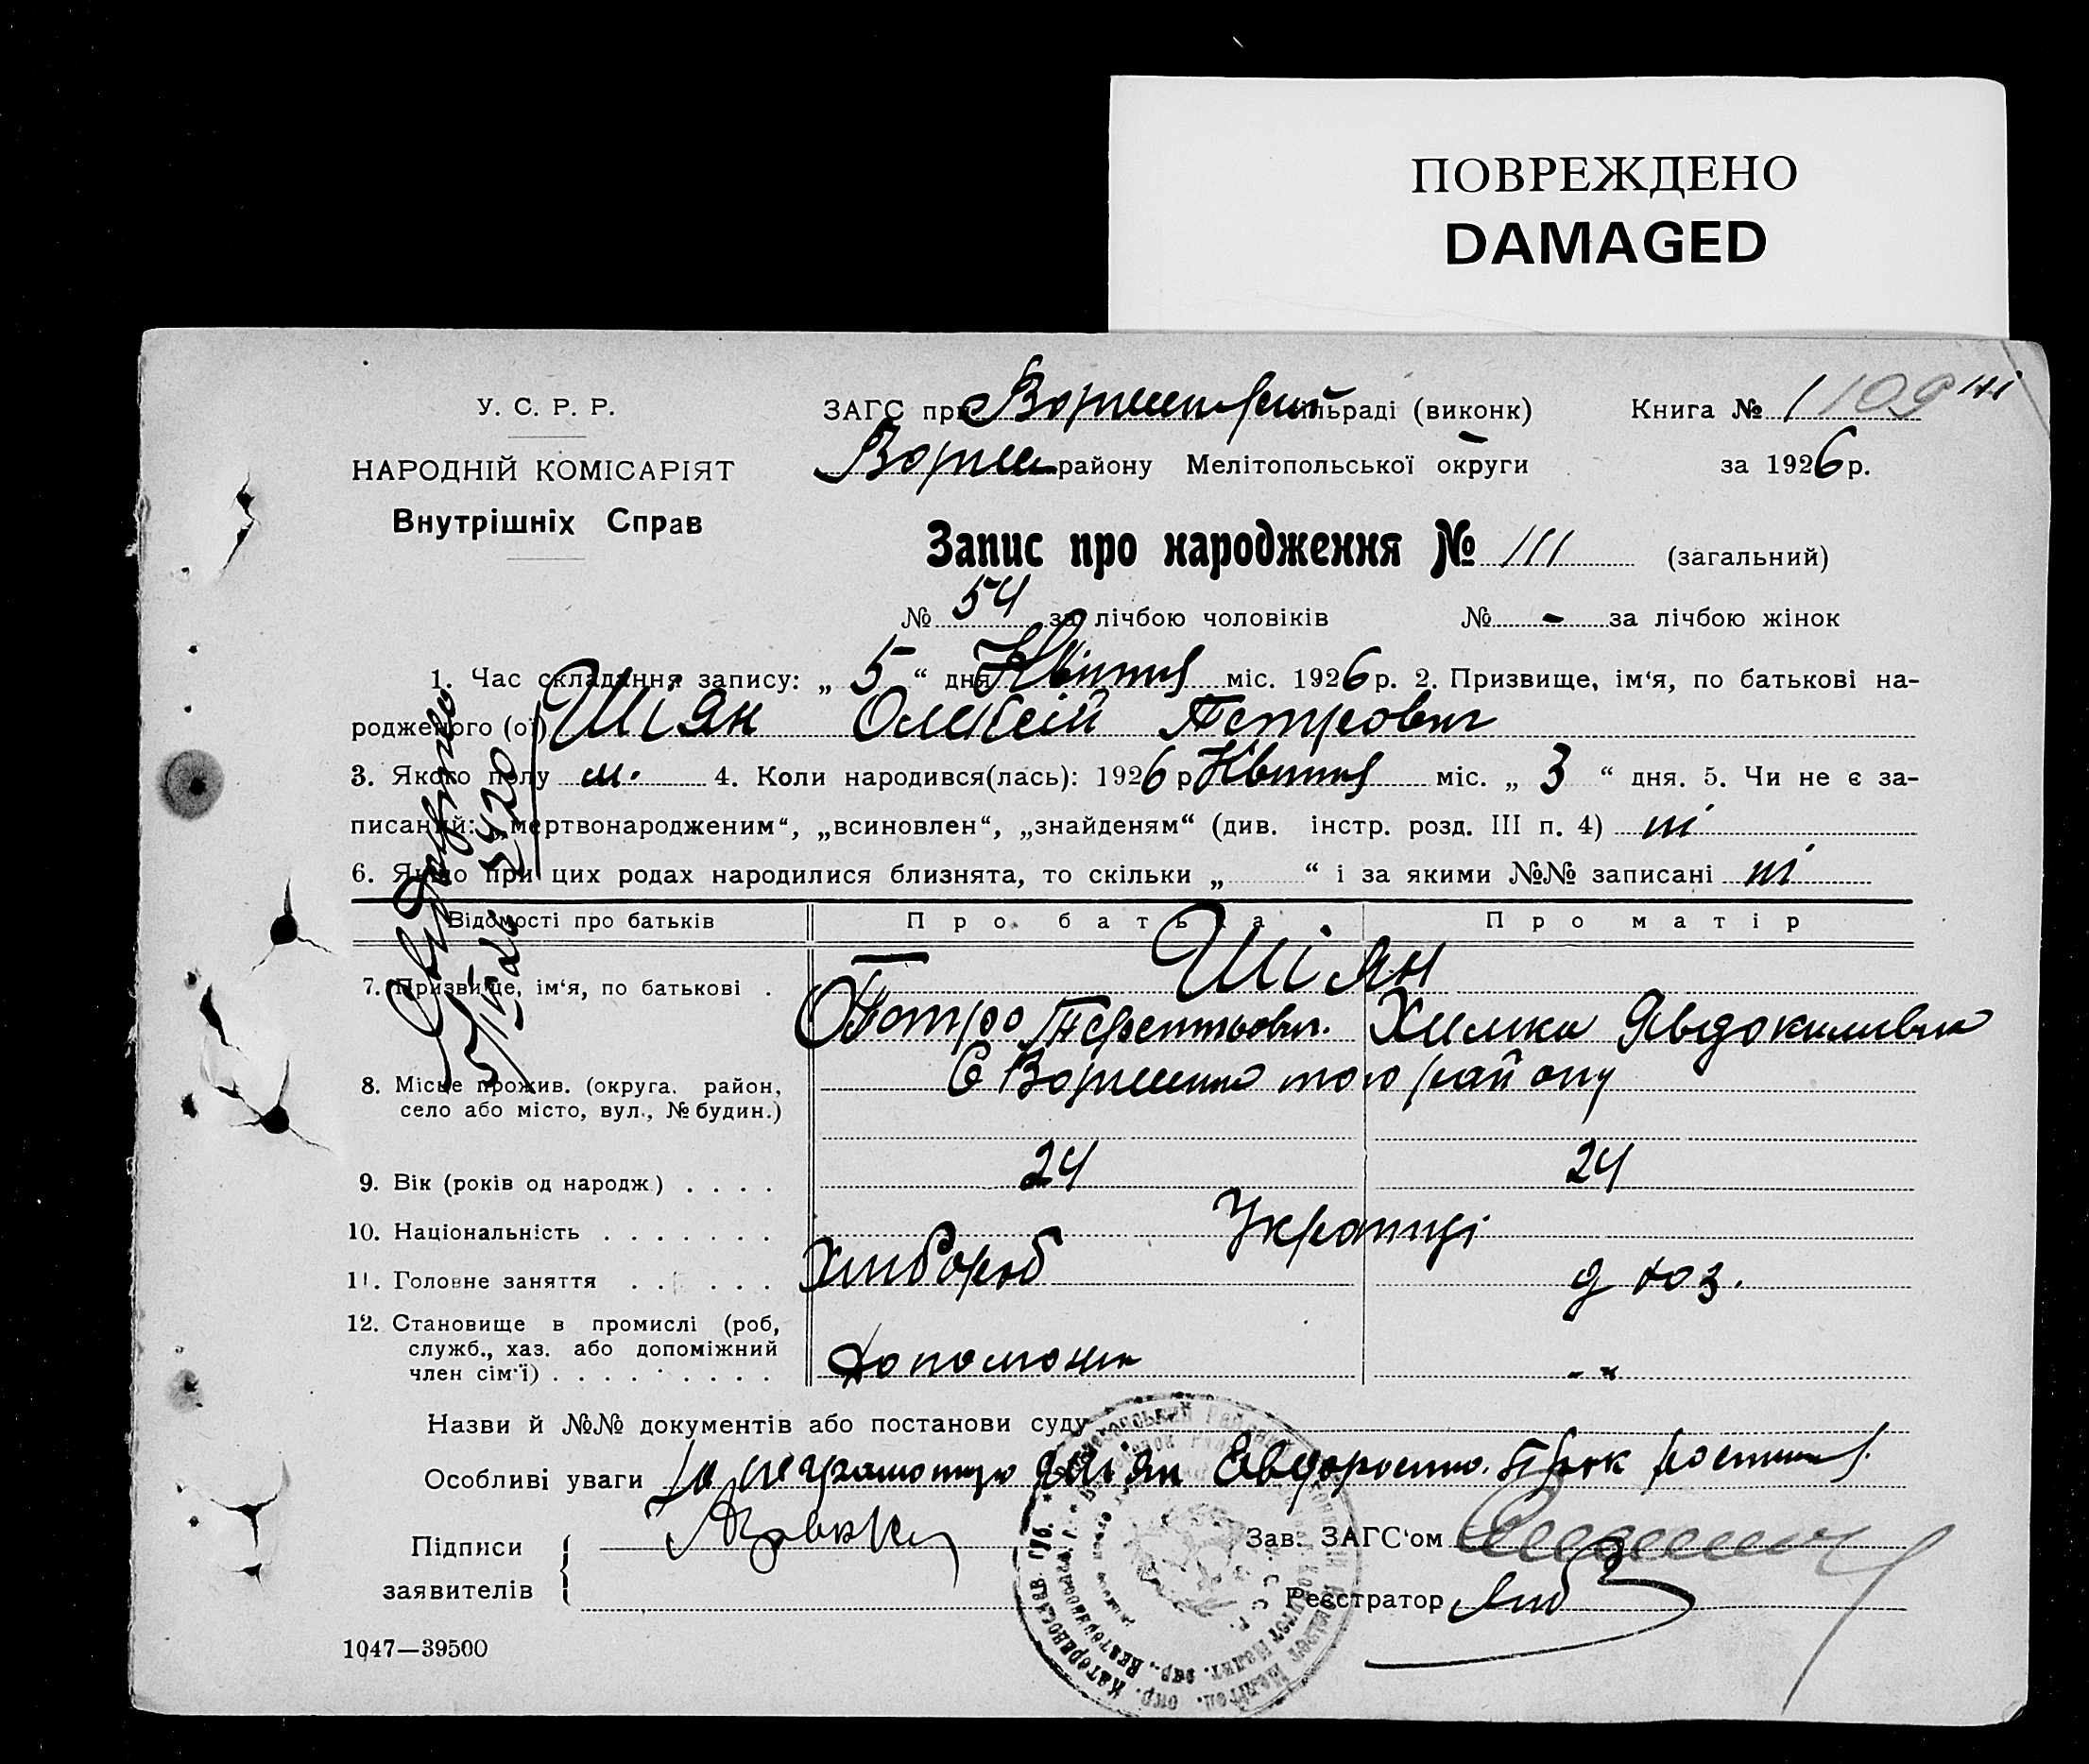 ПОВРЕЖДЕНО
DAMAGED
У. С. Р. Р.
НАРОДНІЙ КОМІСАРІЯТ
Внутрішніх Справ
ЗАГС при сільраді (виконк)
району Мелітопольської округи
Книга № 1 109
за 1926 р.
Запис про народження № 111 (загальний)
№ 54 за лічбою чоловіків № - за лічбою жінок
1. Час складання запису: „ 5 “ дня Квітня міс. 1926 р. 2. Призвище, ім‘я, по батькові на-
родженого (ої) Шіян Олексій Петрович
3. Якого полу м. 4. Коли народився(лась): 1926 р. Квітня міс. „ 3 “ дня. 5. Чи не є за-
писаний: „мертвонародженим“, „всиновлен“, „знайденям“ (див. інстр. розд. III п. 4) ні
6. Якщо при цих родах народилися близнята, то скільки „ “ і за якими №№ записані ні
Відомості про батьків Про батька Про матір
7. Призвище, ім‘я, по батькові . Шіян
Петро Терентьович. Химка Явдокимівна
8. Місце прожив. (округа. район,
село або місто, вул., № будин.)
того району
9. Вік (років од народж.) . . . . 24 24
10. Національність . . . . . . . Українці
11. Головне заняття . . . . . . Хлібороб д хоз.
12. Становище в промислі (роб,
служб., хаз. або допоміжний
член сім‘ї) . . . . . . . . . -"
Назви й №№ документів або постанови суду
Особливі уваги За неграмотную Шіян
Підписи
заявителів
Зав. ЗАГС‘ом
Реєстратор
1047—39500